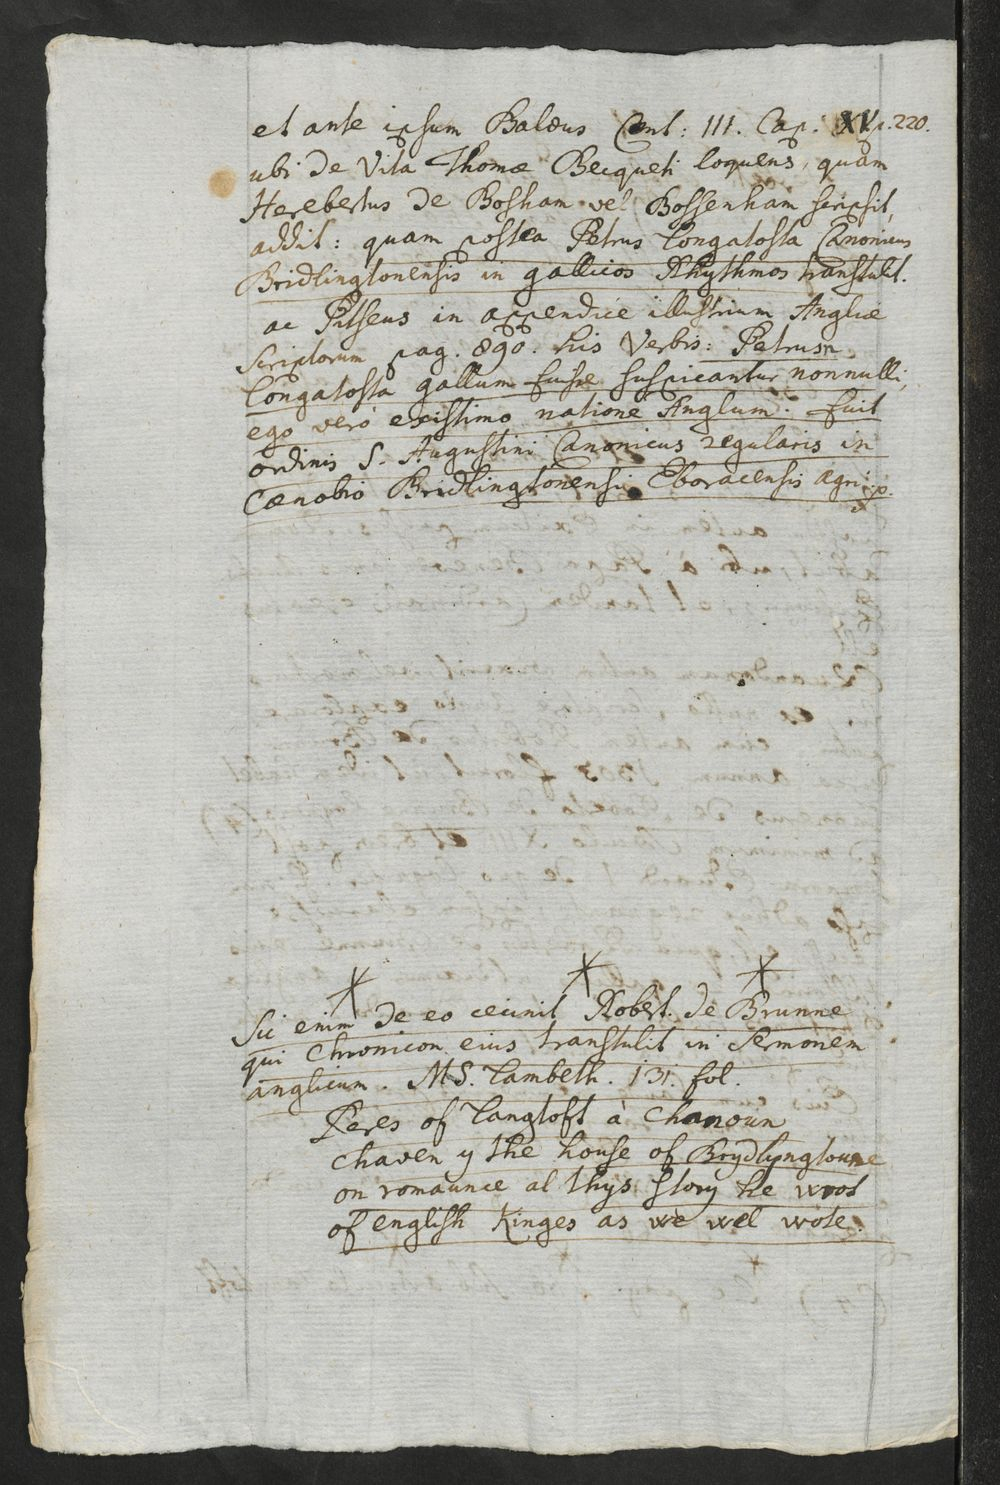 et ante ipsum Balæus Cent: III. Cap. XV p. 220.
ubi de Vita Thomæ Becqueti loquens, quam
Herebertus de Bosham vel Bossenham scripsit,
addit: quam postea Petrus Longatosta Canonicus
Bridlingtonensis in gallicos Rhythmos transtulit.
ac Pitseus in appendice illustrium Angliæ
Scriptorum pag. 890. his Verbis: Petrum
Longatosta gallum fuisse suspicantur nonnulli,
ego verò existimo natione Anglum. fuit
ordinis S. Augustini Canonicus regularis in
Cænobio Bridlingtonensi Eboracensis agri. p.
Sic enim de eo cecinit Robert. de Brunne
qui Chronicon eius transtulit in Sermonem
anglicum. MS. Lambeth. 131. fol.
Peres of Langtoft à Chanoun
Chaven y the house of Brydlyngtoune
on romaunce al thys story he wrot
of english Kinges as we wel wote.